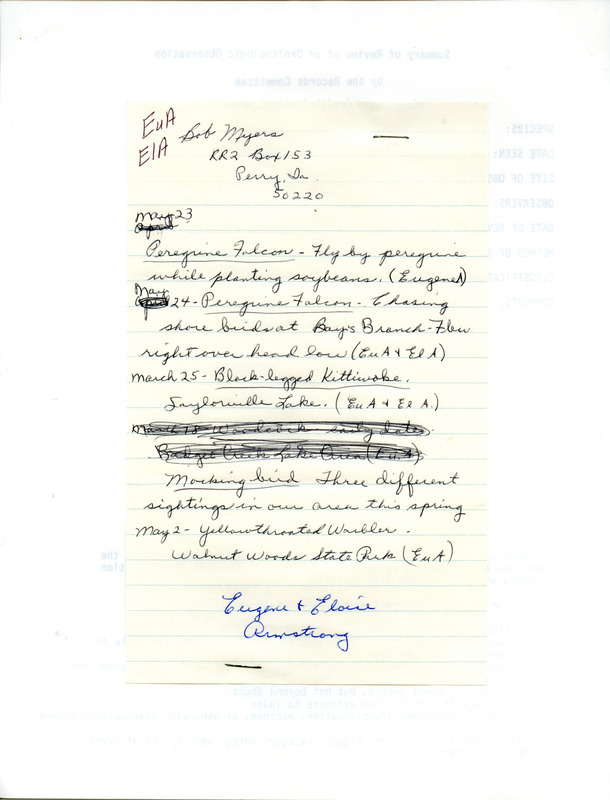 Summary of Review of an Ornithologic Observation
by the Records Committee
SPECIES:
DATE SEEN:
SITE OF OBS
OBSERVERS:
DATE OF REV
METHOD OF
CLASSIFICAT
COMMENTS:
EuA
ElA
Bob Myers
RR2 Box 153
Perry, Ia.
50220
May 23
April
Peregrine Falcon - Fly by peregrine
while planting soybeans. (EugeneA)
May
24 - Peregrine Falcon - Chasing
shore birds at Bay's Branch - Flew
right over head low (EuA & ElA)
March 25 - Black-legged Kittiwake.
Saylorville Lake. (EuA & ElA.)
March 18 Woodcock early date.
Badger Creek Lake Area (EuA)
Mocking bird Three different
sightings in our area this spring
May 2 - Yellowthroated Warbler.
Walnut Woods State Park (EuA)
Eugene & Eloise
Armstrong